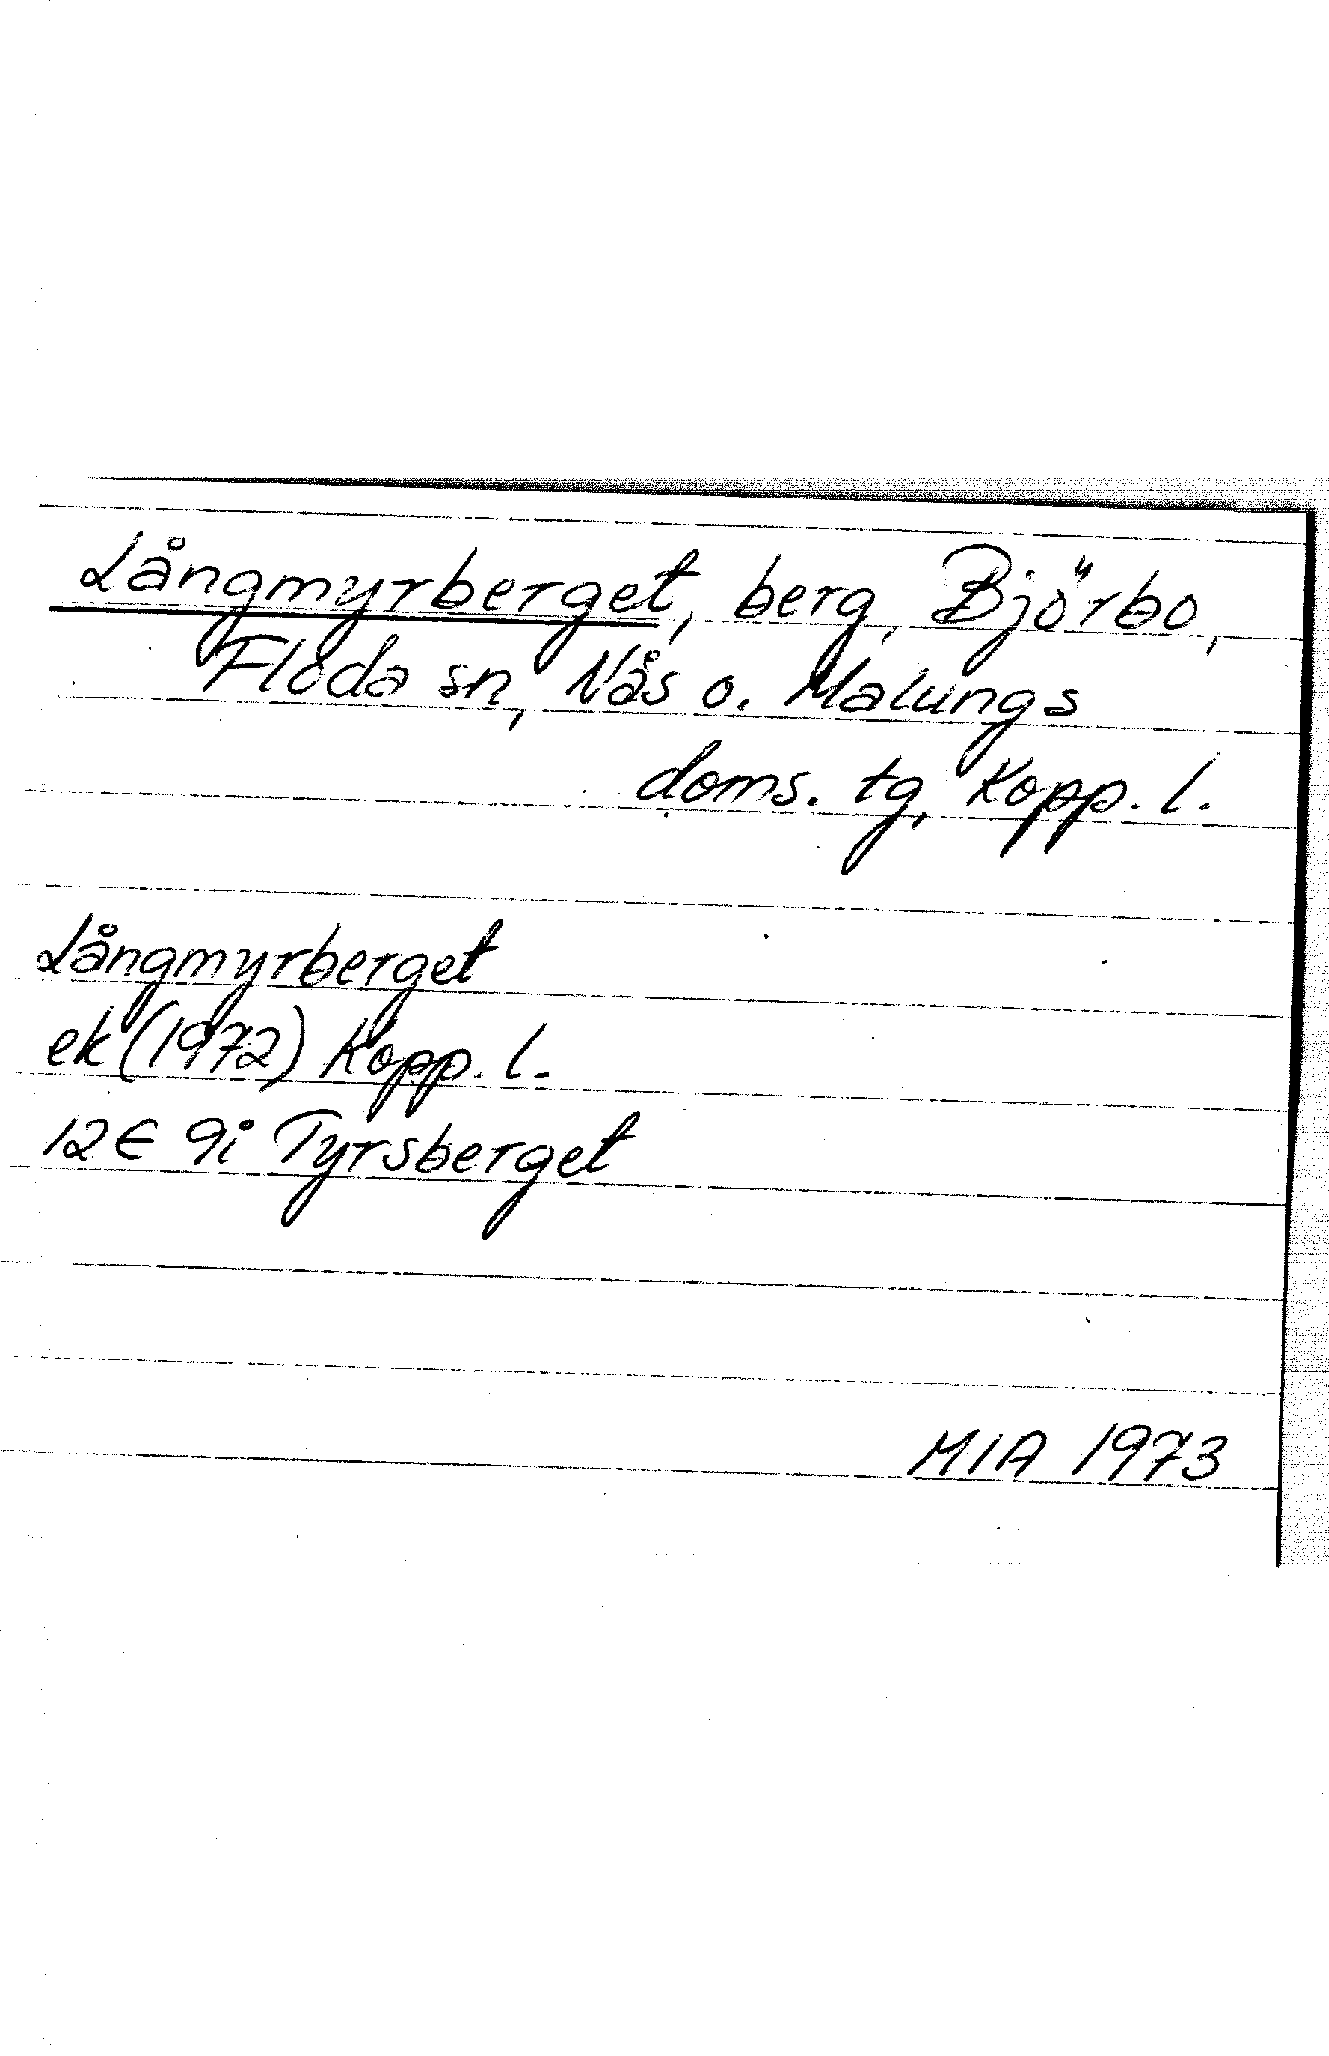 Långmyrberget, berg, Björbo,
Floda sn, Nås o. Malungs
doms. tg, Kopp. l.
Långmyrberget
ek (1972) Kopp. l.
12E 9i Tyrsberget
MIA 1973